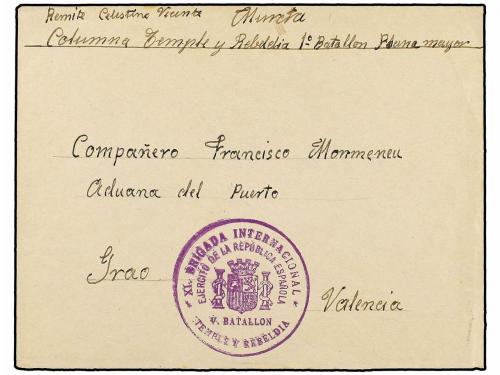 Remite Celestino Vicente Murcia
Columna Temple y Rebeldia 1º Batallon Plana mayor
Compañero Francisco Monmeneu
Aduana del Puerto
Grao
Valencia
* XI. BRIGADA INTERNACIONAL *
EJERCITO DE LA REPÚBLICA ESPAÑOLA
V. BATALLON
"TEMPLE Y REBELDIA"